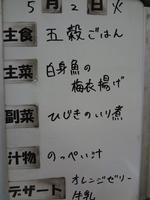 5月2日火
主食 五穀ごはん
主菜 白身魚の
梅衣揚げ
副菜 ひじきのいり煮
汁物 のっぺい汁
デザート オレンジゼリー
牛乳